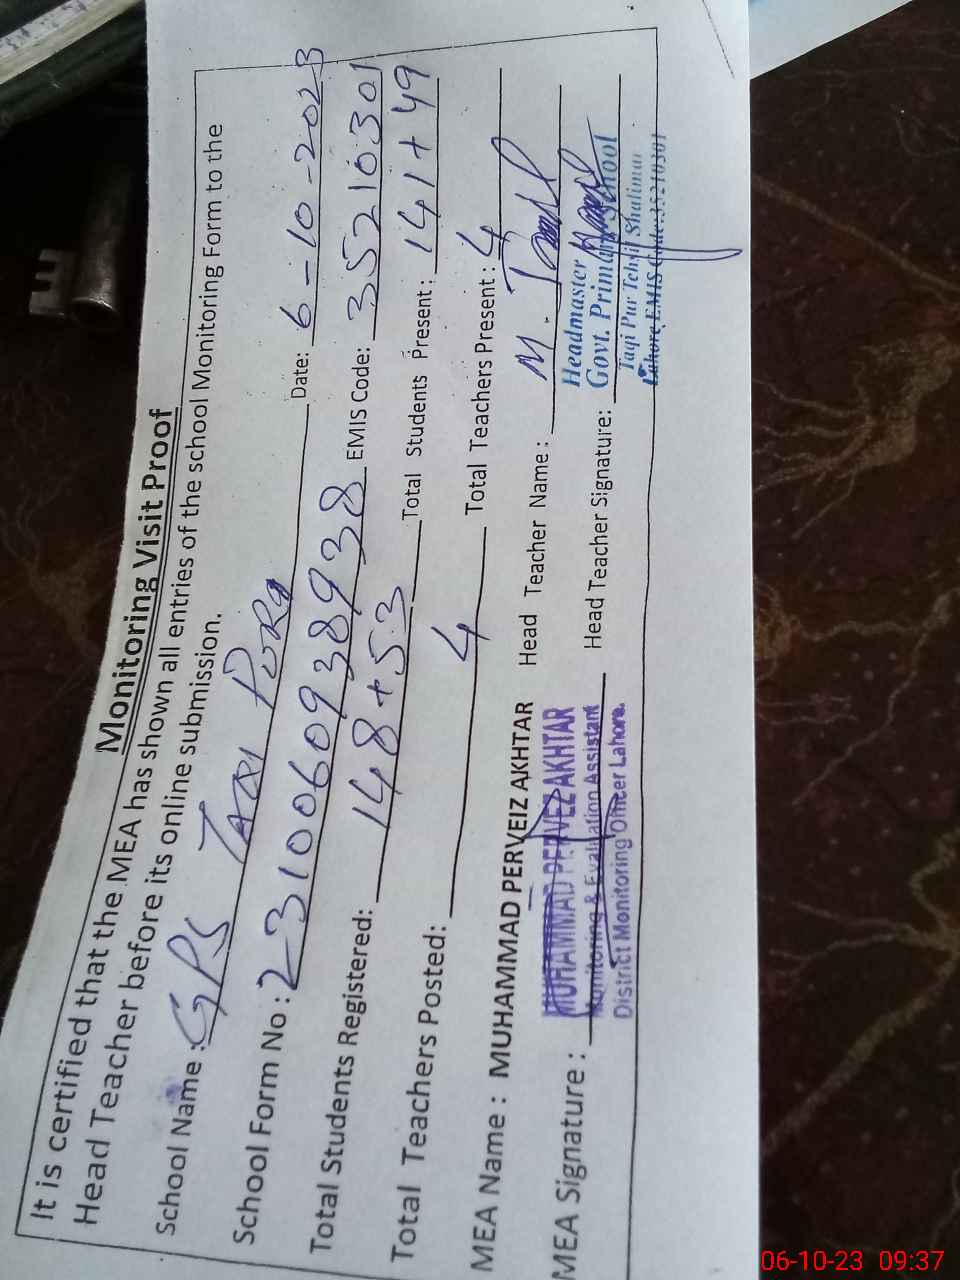 Monitoring Visit Proof
It is certified that the MEA has shown all entries of the school Monitoring Form to the
Head Teacher before its online submission.
School Name : GPS TAQI PURA Date: 6-10-2023
School Form No : 231006093938938 EMIS Code: 35210301
Total Students Registered: 148+53 Total Students Present: 141+49
Total Teachers Posted: 4 Total Teachers Present: 4
MEA Name : MUHAMMAD PERVEIZ AKHTAR Head Teacher Name : M.
MEA Signature : Head Teacher Signature:
MUHAMMAD PERVEZ AKHTAR
Monitoring & Evaluation Assistant
District Monitoring Officer Lahore.
Headmaster
Govt. Primary School
Taqi Pur Tehsil Shalimar
Lahore EMIS Code:35210301
06-10-23 09:37